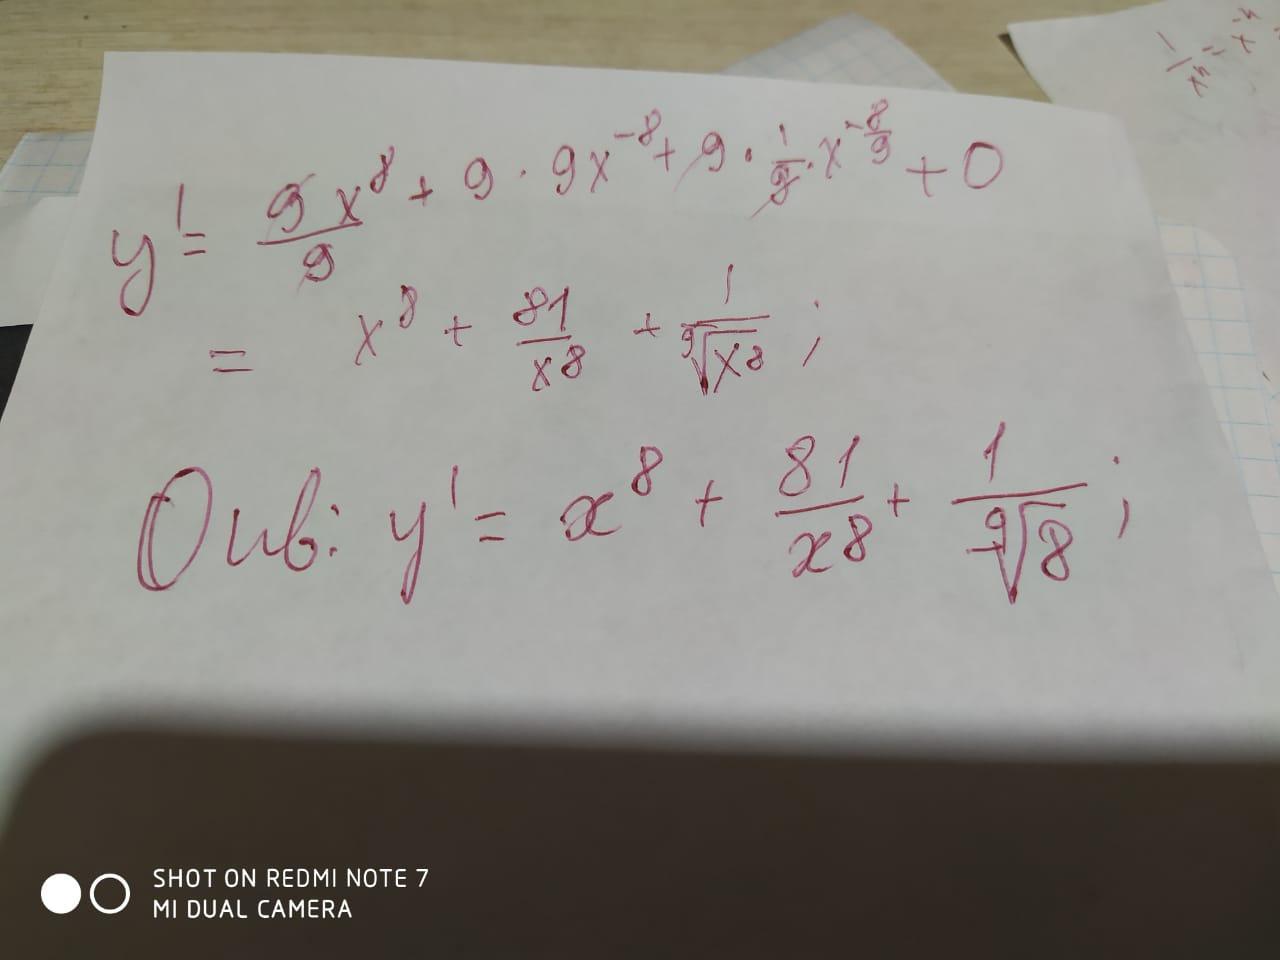 y' = 9x⁸/9 + 9 · 9x⁻⁸ + 9 · 1/9 · x^(-8/9) + 0
= x⁸ + 81/x⁸ + 1/⁹√x⁸ ;
Отв: y' = x⁸ + 81/x⁸ + 1/⁹√8 ;
SHOT ON REDMI NOTE 7
MI DUAL CAMERA